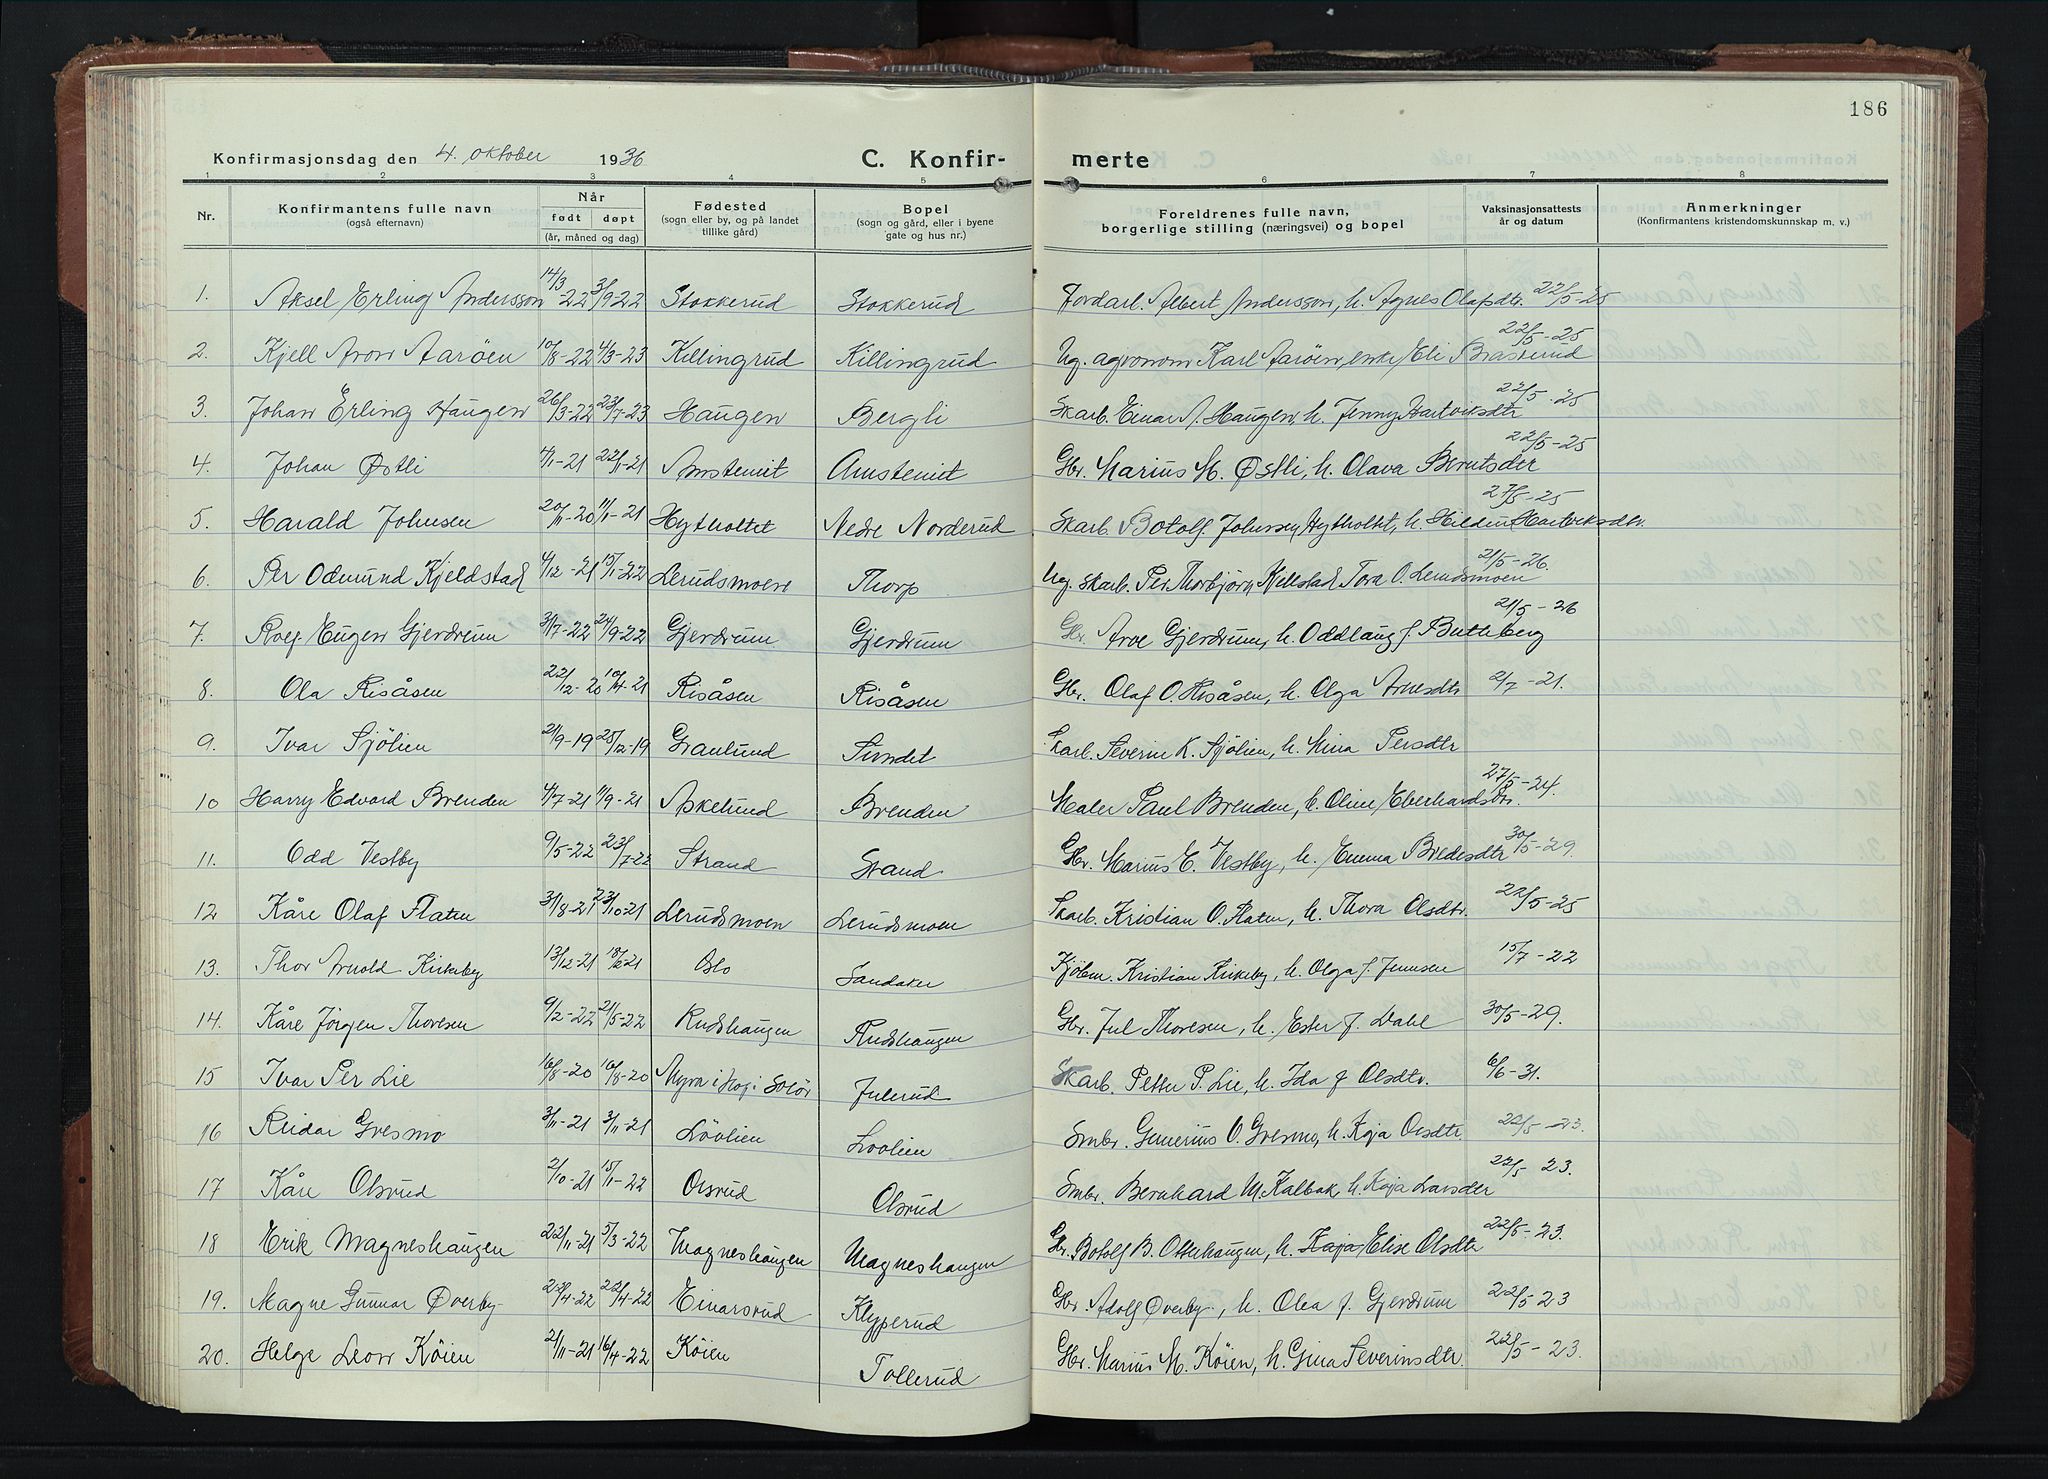 186
Konfirmasjonsdag den 4. oktober 1936 C. Konfir- merte
1 2 3 4 5 6 7 8
Nr. Konfirmantens fulle navn (også efternavn) Når født døpt (år, måned og dag) Fødested (sogn eller by, og på landet tillike gård) Bopel (sogn og gård, eller i byene gate og hus nr.) Foreldrenes fulle navn, borgerlige stilling (næringsvei) og bopel Vaksinasjonsattests år og datum Anmerkninger (Konfirmantens kristendomskunnskap m. v.)
1. Aksel Erling Andersson 14/3-22 3/9-22 Stokkerud Stokkerud Jordarb. Albert Andersson, h. Agnes Olafsdtr. 22/5-25
2. Kjell Aron Aarøen 10/8-22 4/3-23 Killingrud Killingrud Ug. agronom Karl Aarøen, enke Eli 22/5-25
3. Johan Erling Haugen 26/3-22 23/7-23 Haugen Bergli Skarb. Einar A. Haugen, h. Jenny Hartviksdtr 22/5-25
4. Johan Østli 4/1-21 22/11-21 Arnstemit Arnstemit Gbr. Marius M. Østli, h. Olava Berntsdtr 22/5-25
5. Harald Johnsen 20/11-20 11/1-21 Hytholtet Nedre Norderud Skarb. Botolf Johnsen, Hytholtet, h. Hilda Hartviksdtr. 27/5-25
6. Per Odmund Kjeldstad 4/12-21 15/1-22 Lerudsmoen Thorp Ug. skarb. Per Thorbjørn Kjellstad Tora O. Lerudsmoen 21/5-26.
7. Rolf Eugen Gjerdrum 31/7-22 24/9-22 Gjerdrum Gjerdrum Gbr. Arve Gjerdrum, h. Oddlaug f. Butteberg 21/5-26
8. Ola Risåsen 22/12-20 10/4-21 Risåsen Risåsen Gbr. Olaf O. Risåsen, h. Olga Arnesdtr 2/7-21.
9. Ivar Sjølien 21/9-19 25/12-19 Granlund Sundet Skarb. Severin K. Sjølien, h. Mina Persdtr
10 Harry Edvard Brenden 4/7-21 11/9-21 Askelund Brenden Maler Paul Brenden, h. Oline Eberhardsdtr. 27/5-24.
11. Odd Vestby 9/5-22 23/7-22 Strand Strand Gbr. Marius E. Vestby, h. Emma Bredesdtr 30/5-29.
12 Kåre Olaf Flaten 31/8-21 23/10-21 Lerudsmoen Lerudsmoen Skarb. Kristian O. Flaten, h. Thora Olsdtr. 22/5-25
13. Thor Arnold Kirkeby 13/12-21 Oslo Sandaker Kjøbm. Kristian Kirkeby, h. Olga f. Jennsen 15/7-22
14. Kåre Jørgen Thoresen 9/2-22 21/5-22 Rudshaugen Rudshaugen Gbr. Jul Thoresen, h. Ester f. Dahl 30/5-29.
15 Ivar Per Lie 16/8-20 16/8-20 Myra i Hof i Solør Julerud Skarb. Petter P. Lie, h. Ida f Olsdtr. 6/6-31.
16 Reidar Gresmo 3/11-21 3/11-21 Løvlien Lovlien Smbr. Gunerius O. Gresmo, h. Kaja Olsdtr 22/5-23.
17 Kåre Olsrud 2/10-21 15/1-22 Olsrud Olsrud Smbr. Bernhard M. Kalbak, h. Kaja Larsdtr 22/5-23.
18 Erik Magneshaugen 22/11-21 5/3-22 Magneshaugen Magneshaugen Gbr. Botolf B. Otterhaugen, h. Kaja Elise Olsdtr 22/5-23.
19. Magne Gunnar Øverby 23/4-22 22/4-22 Einarsrud Klypperud Gbr. Adolf Øverby, h. Olea f. Gjerdrum 22/5-23
20. Helge Leon Køien 2/11-21 16/4-22 Køien Tollerud Gbr. Marius M. Køien, h. Gina Severinsdtr. 22/5-23.